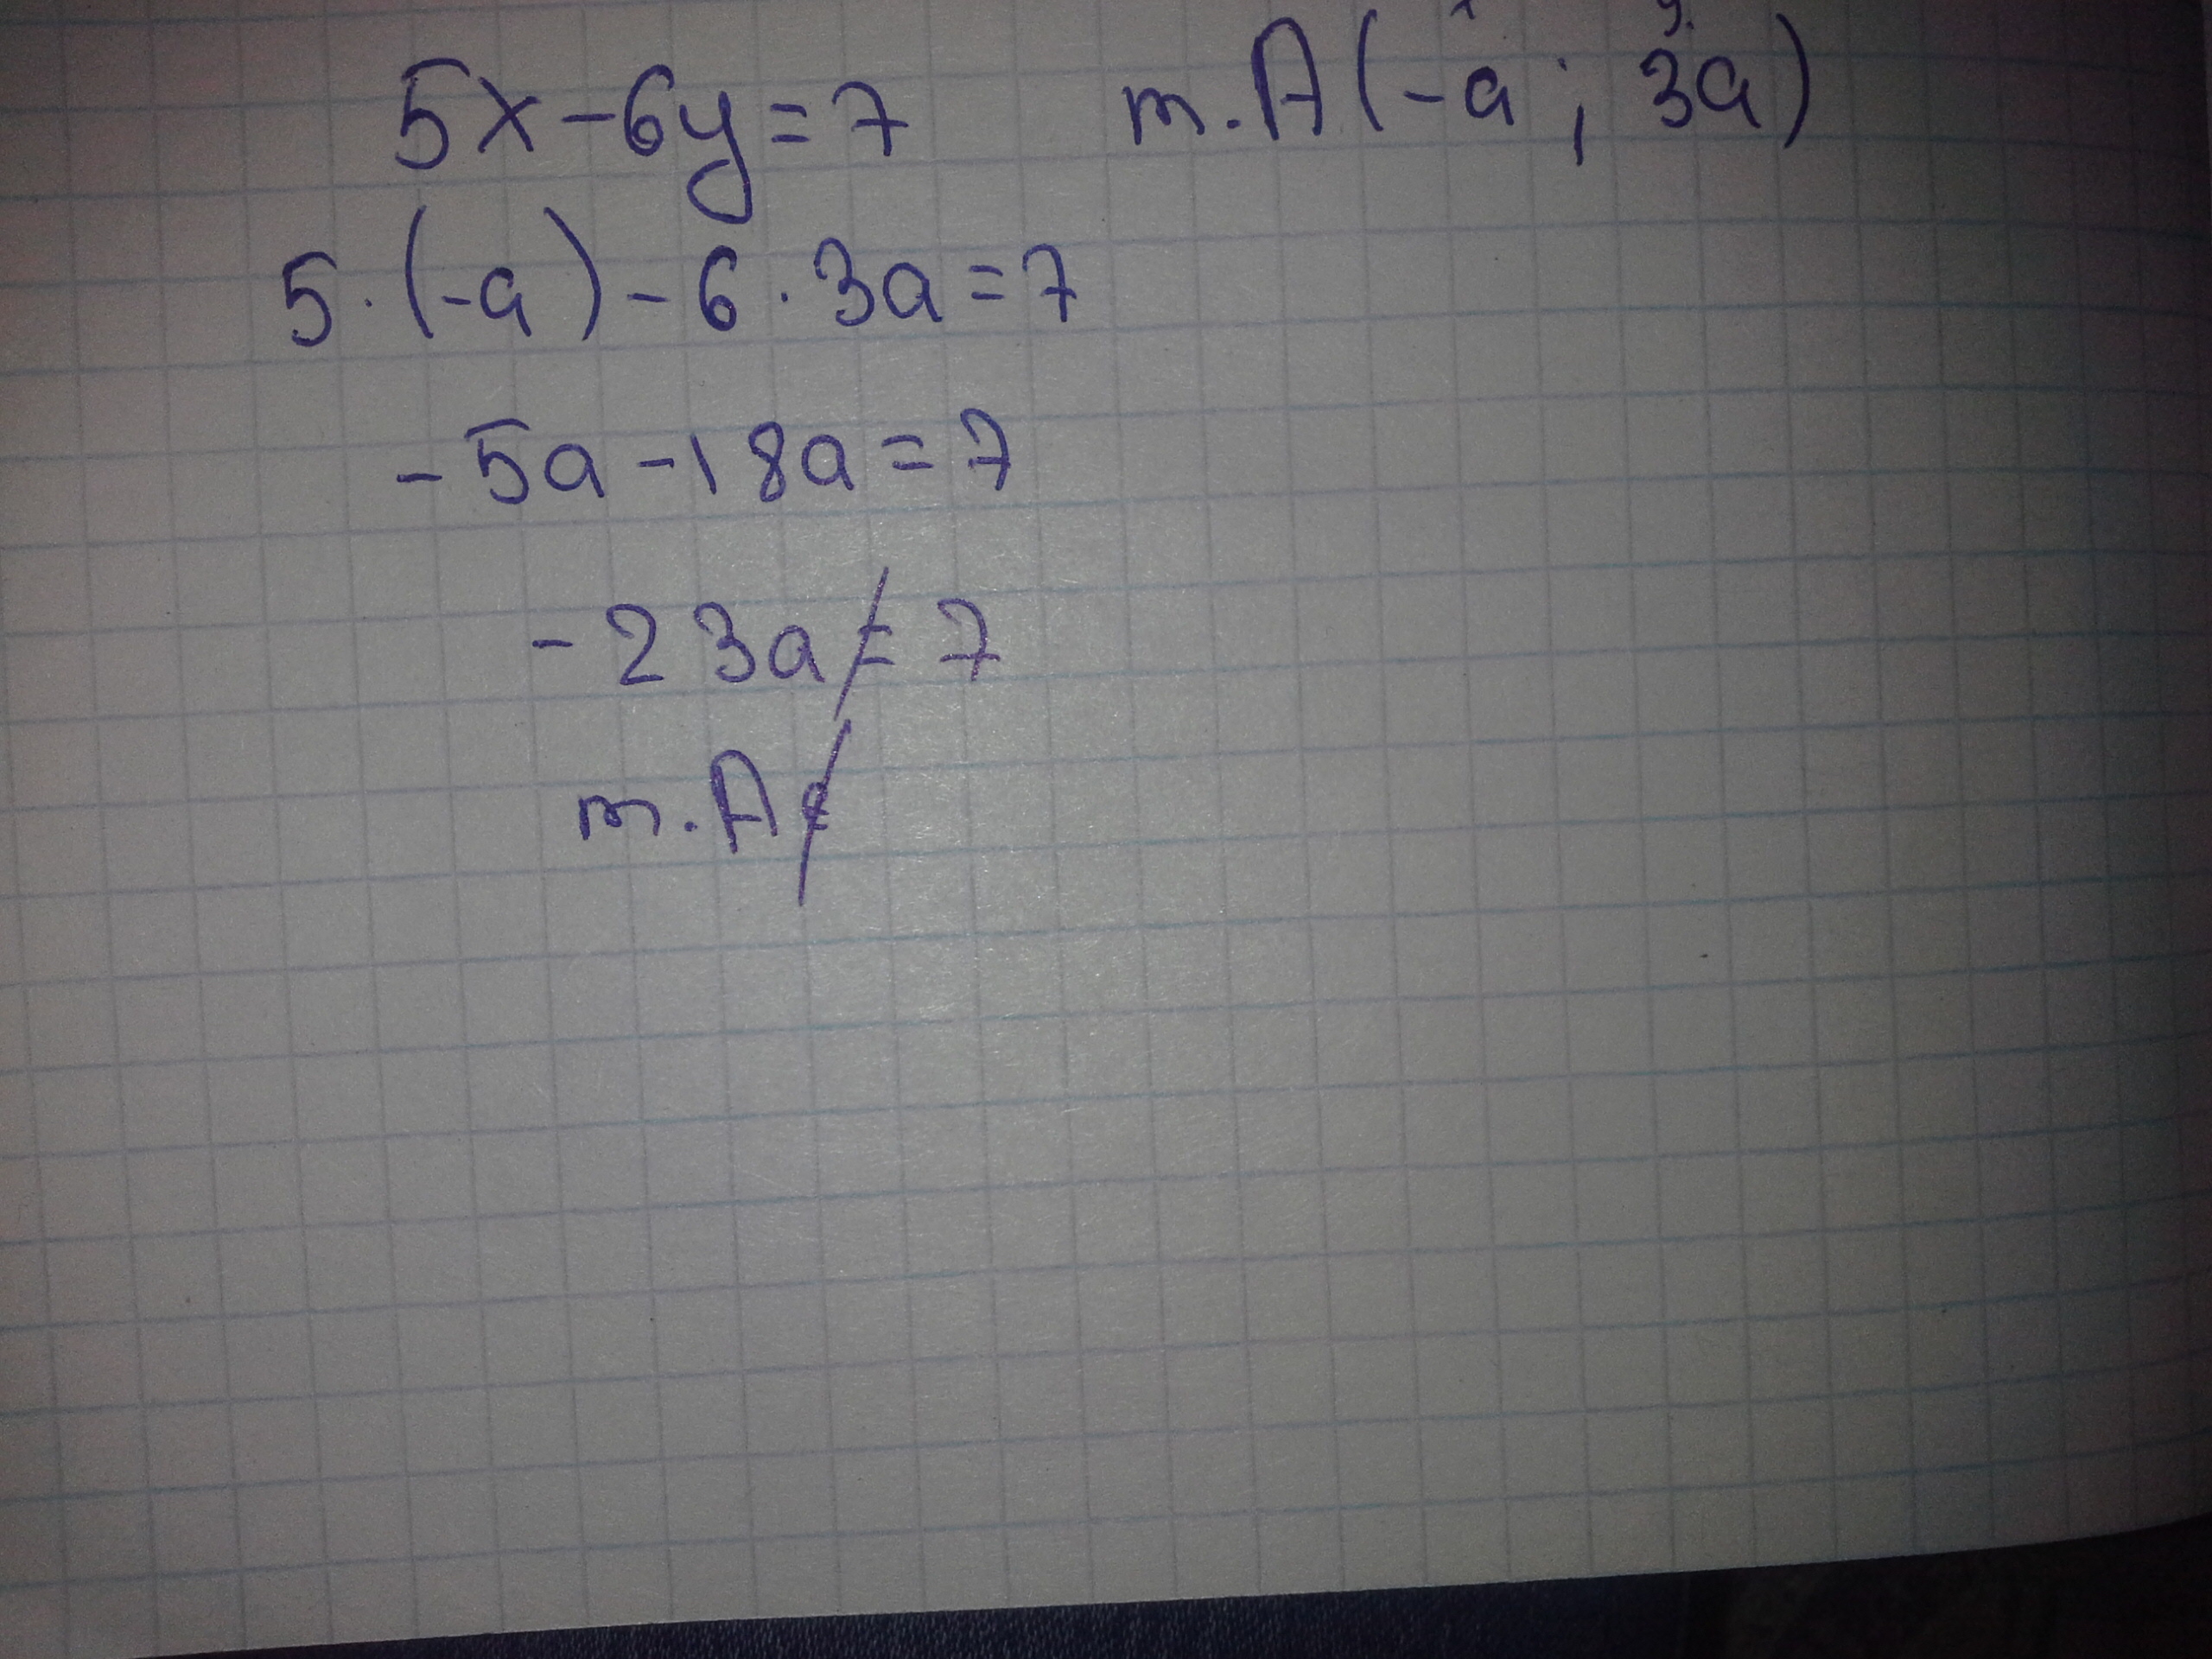 5x-6y=7 т.A(-a; 3a)
5·(-a)-6·3a=7
-5a-18a=7
-23a≠7
т.A∉